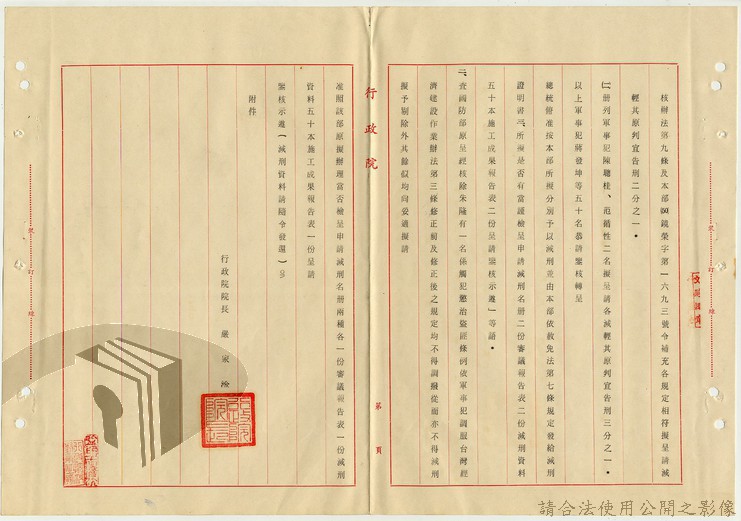 核辦法第九條及本部 鏡榮字第一六九三號令補充各規定相符擬呈請減
輕其原判宣告刑二分之一。
㈡册列軍事犯陳聰桂、范 性二名擬呈請各減輕其原判宣告刑三分之一。
以上軍事犯蔣發坤等五十名恭請鑒核轉呈
總統俯准按本部所擬分別予以減刑並由本部依赦免法第七條規定發給減刑
證明書三、所擬是否有當謹檢呈申請減刑名册二份審議報告表二份減刑資料
五十本施工成果報告表二份呈請鑒核示遵」等語。
二、查國防部原呈經核除朱 有一名係觸犯懲治盜匪條例依軍事犯調服台灣經
濟建設作業辦法第三條修正前及修正後之規定均不得調撥從而亦不得減刑
擬予剔除外其餘似均尚妥適擬請
行政院
第 頁
准照該部原擬辦理當否檢呈申請減刑名册兩種各一份審議報告表一份減刑
資料五十本施工成果報告表一份呈請
鑒核示遵(減刑資料請隨令發還)
附件
行政院院長 嚴家淦
裝訂線
裝訂線
請合法使用公開之影像